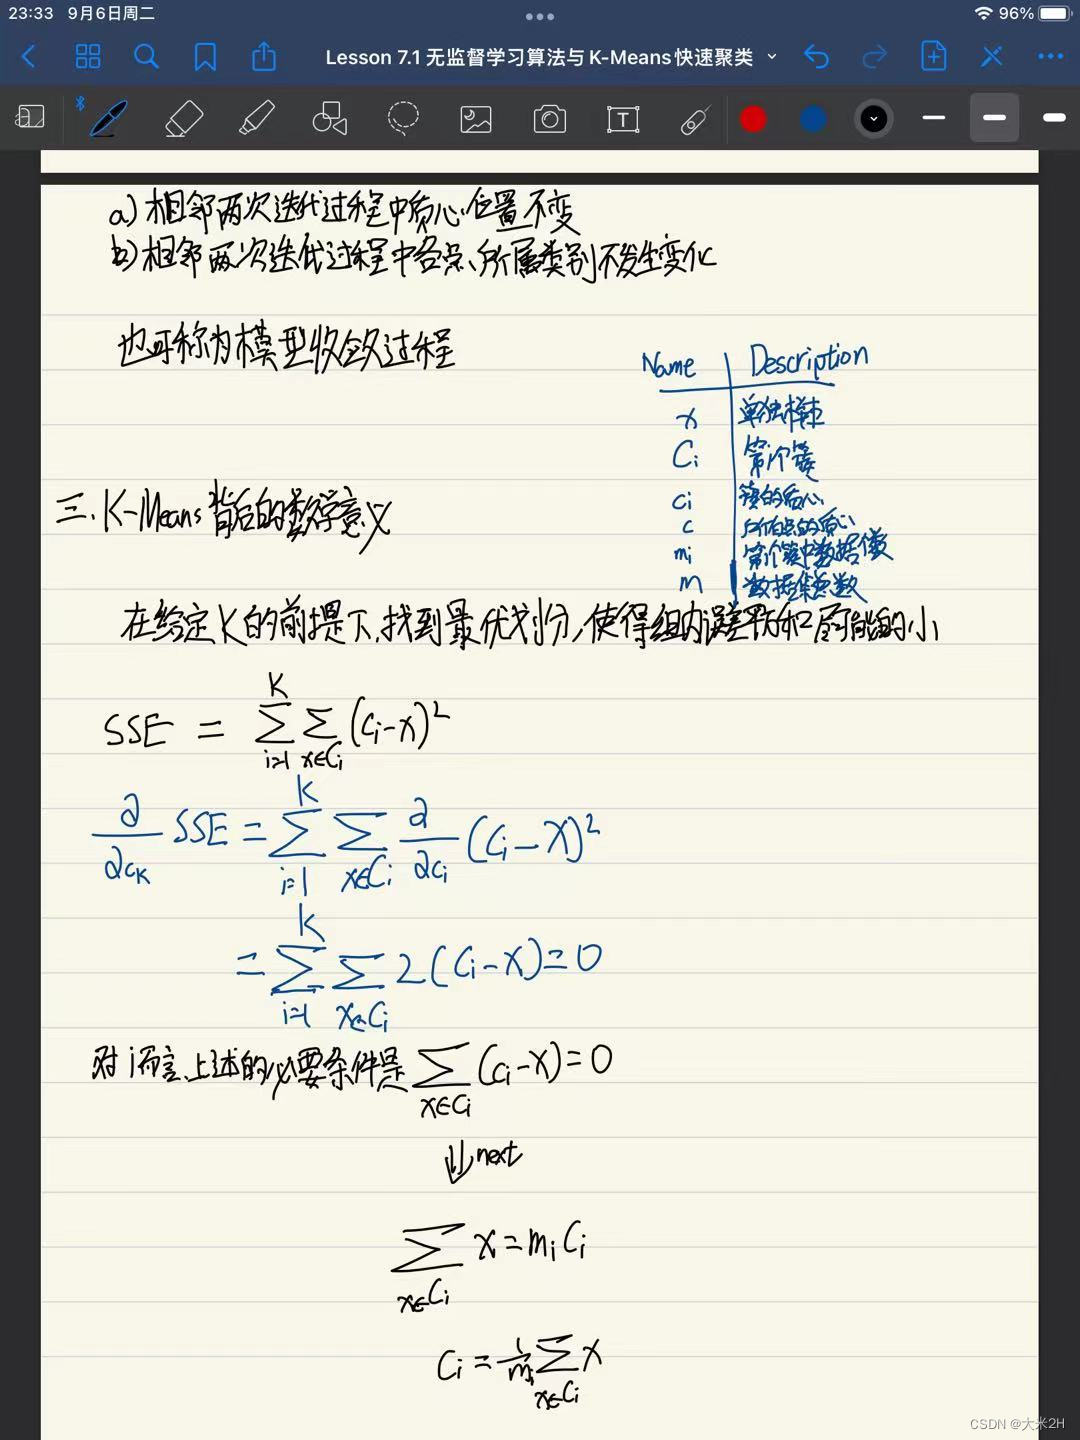 23:33 9月6日周二
96%
Lesson 7.1 无监督学习算法与 K-Means 快速聚类
T
a) 相邻两次迭代过程中质心位置不变
b) 相邻两次迭代过程中各点所属类别不发生变化
也可称为模型收敛过程
Name Description
x 单独样本
Ci 第i个簇
ci 簇的质心
c 所有点的质心
mi 第i个簇中数据个数
m 数据集总数
三. K-Means 背后的数学意义
在给定K的前提下,找到最优划分,使得组内误差平方和尽可能的小
SSE = ∑_{i=1}^{K} ∑_{x∈Ci} (ci-x)²
∂/∂cK SSE = ∑_{i=1}^{K} ∑_{x∈Ci} ∂/∂ci (ci-x)²
= ∑_{i=1}^{K} ∑_{x∈Ci} 2(ci-x)=0
对i而言,上述的必要条件是 ∑_{x∈Ci} (ci-x)=0
⇓ next
∑_{x∈Ci} x = mi ci
ci = 1/mi ∑_{x∈Ci} x
CSDN @大米2H